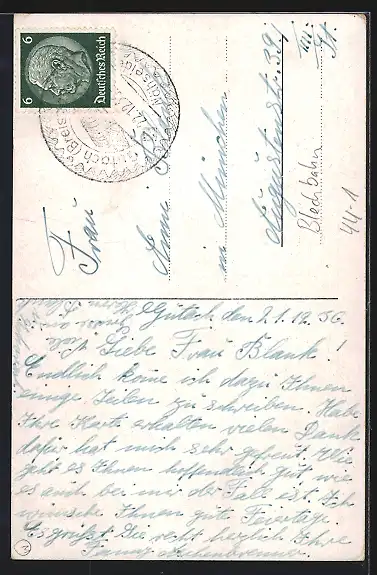 Deutsches Reich
6 6
Gutach (Breisg
Frau
Anna
in München
Augustenstr. 39/
III. St.
Blechbahn
44-1
Gutach den 21.12.36.
Liebe Frau Blank!
Endlich kome ich dazu Ihnen
einige Zeilen zu schreiben. Habe
Ihre Karte erhalten vielen Dank
dafür hat mich sehr gefreut. Wie
geht es Ihnen hoffendlich gut wie
es auch bei mir der Fall ist. Ich
wünsche Ihnen gute Feiertage
Es grüßt Sie recht herzlich Ihre
Fanny